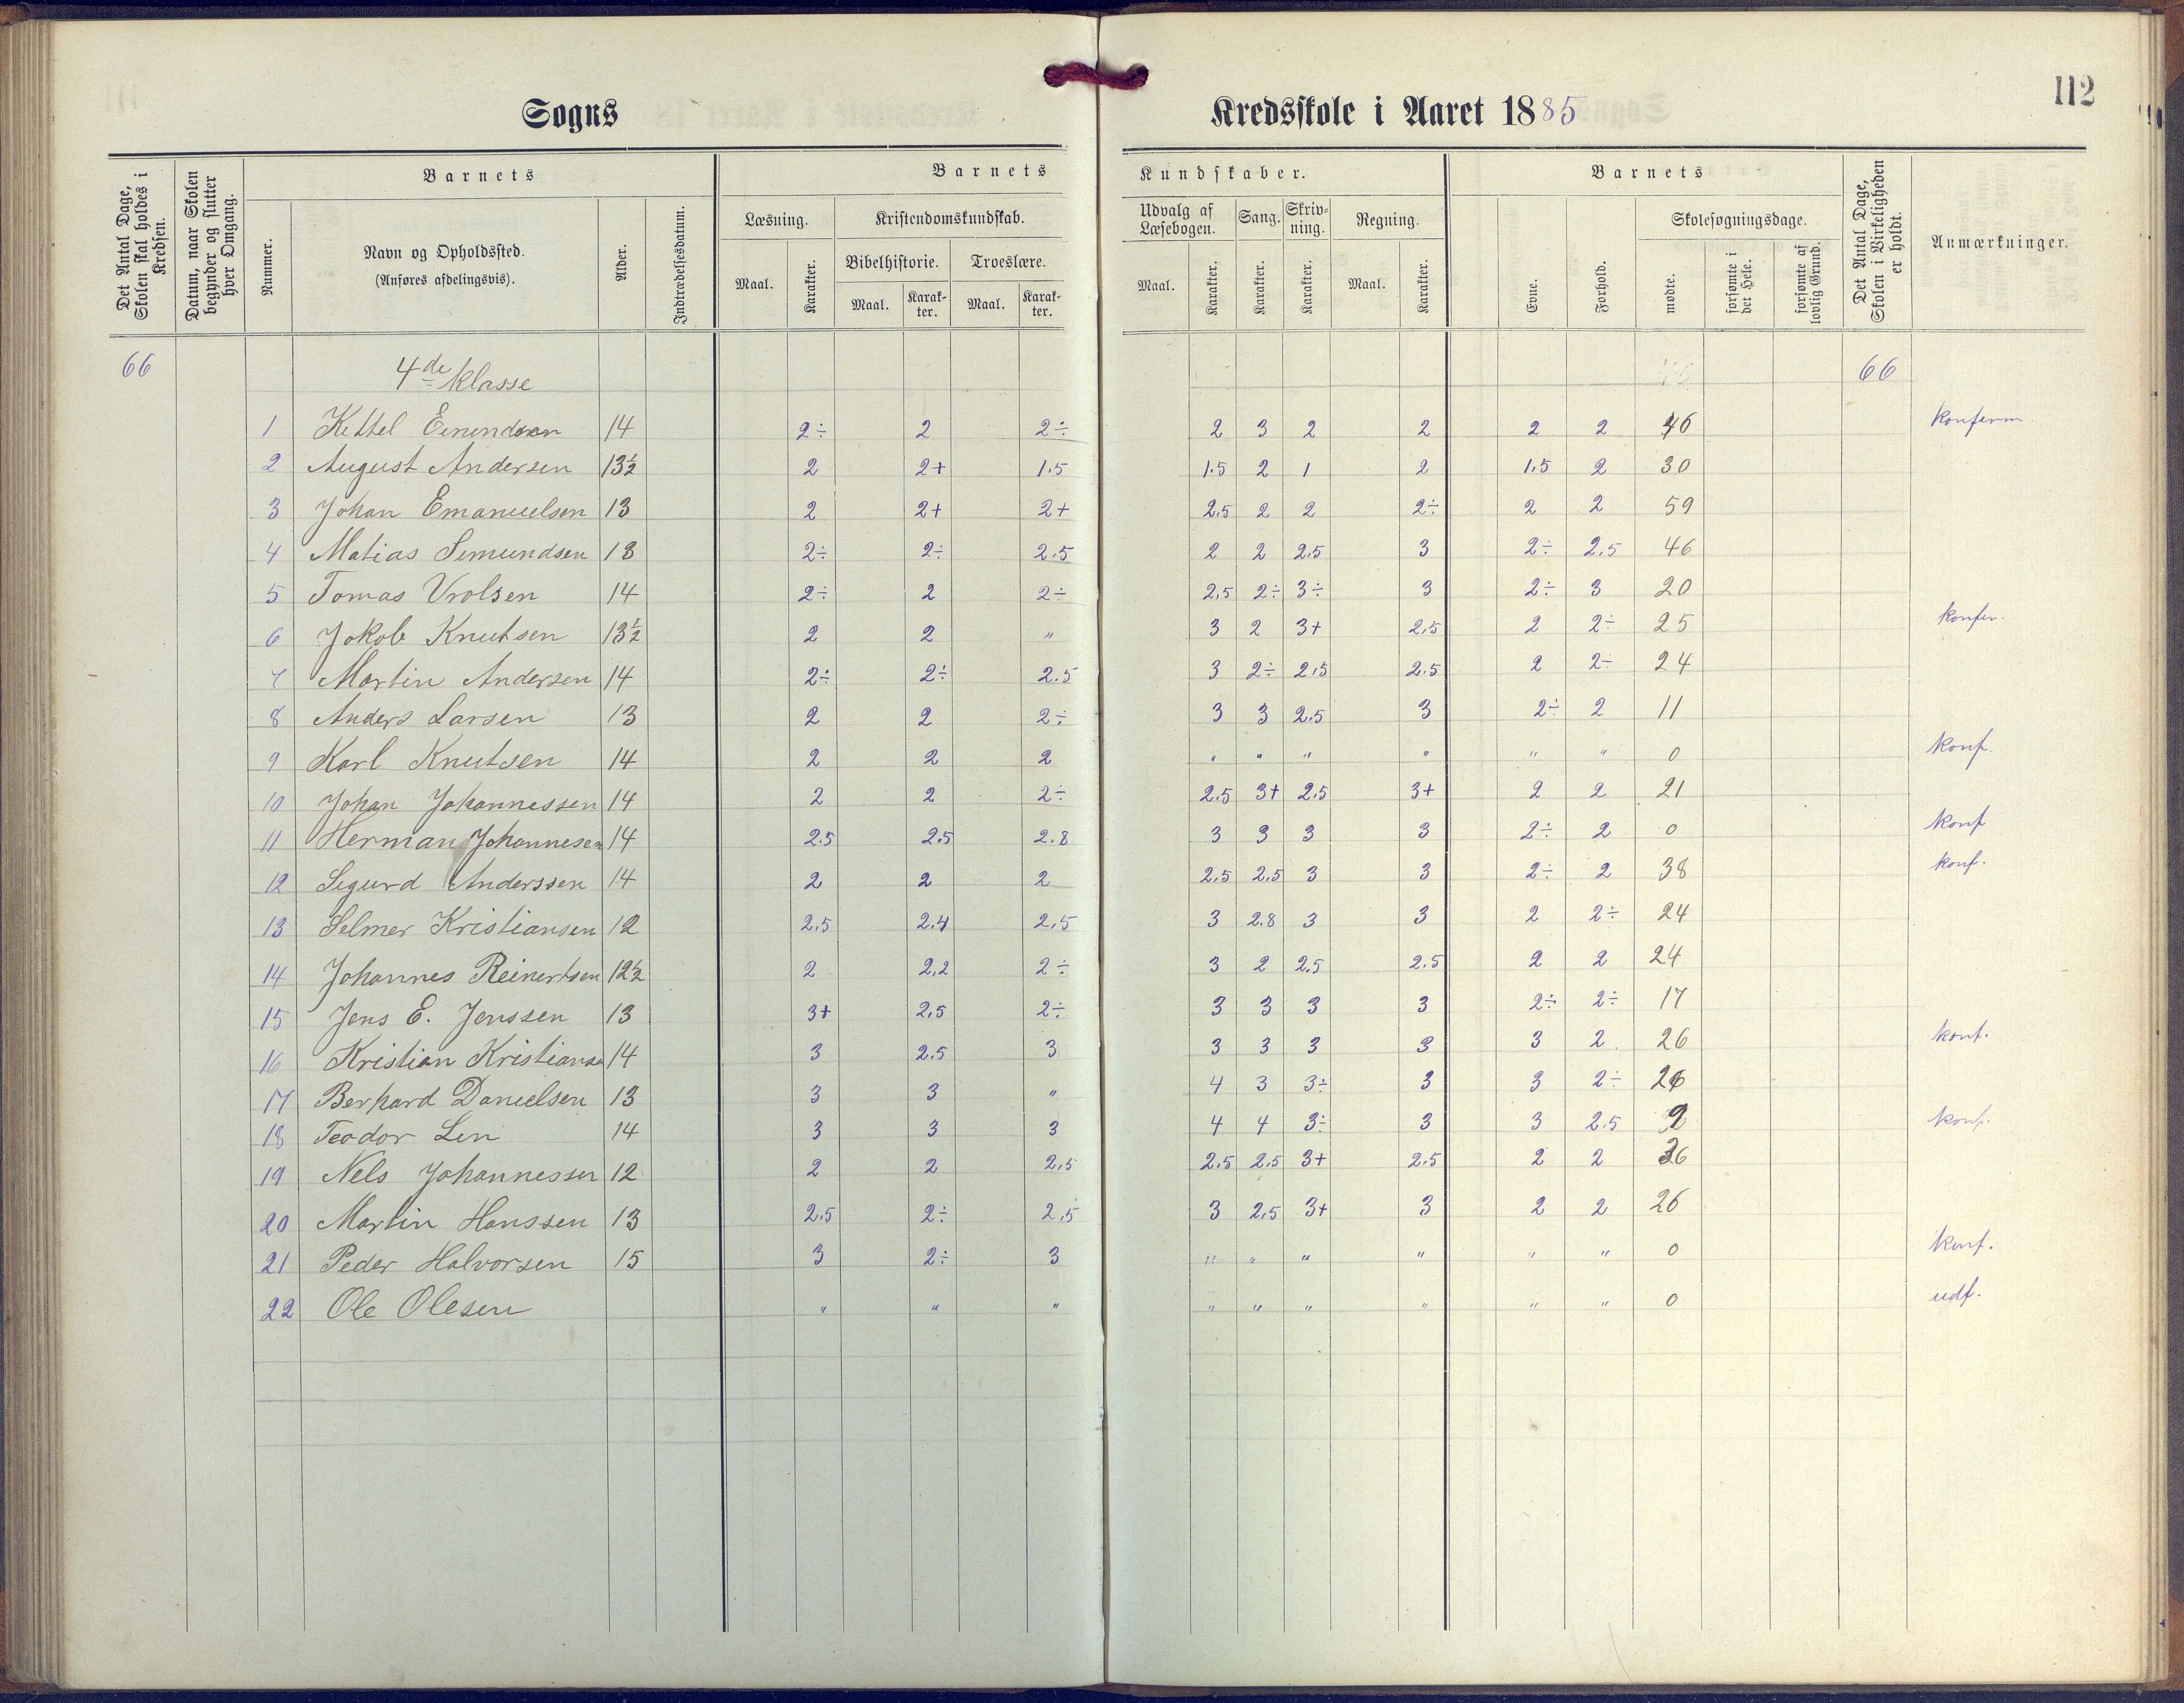 112
Sogns Kredsskole i Aaret 1885
Det Antal Dage, Skolen skal holdes i Kredsen.
Datum, naar Skolen begynder og slutter hver Omgang.
Barnets
Nummer.
Navn og Opholdssted.
(Anføres afdelingsvis).
Alder.
Indtrædelsesdatum.
Barnets Kundskaber.
Læsning.
Maal. Karakter.
Kristendomskundskab.
Bibelhistorie. Troeslære.
Maal. Karakter. Maal. Karakter.
Udvalg af Læsebogen.
Maal. Karakter.
Sang.
Karakter.
Skrivning.
Karakter.
Regning.
Maal. Karakter.
Barnets
Evne.
Forhold.
Skolesøgningsdage.
mødte.
forsømte i det Hele.
forsømte af lovlig Grund.
Det Antal Dage, Skolen i Virkeligheden er holdt.
Anmærkninger.
66 4de klasse 66
1 Kittel Emundsen 14 2÷ 2 2÷ 2 3 2 2 2 2 46 konferm
2 August Andersen 13½ 2 2+ 1.5 1.5 2 1 2 1.5 2 30
3 Johan Emanuelsen 13 2 2+ 2+ 2.5 2 2 2÷ 2 2 59
4 Matias Semundsen 13 2÷ 2÷ 2.5 2 2 2.5 3 2÷ 2.5 46
5 Tomas Vrolsen 14 2÷ 2 2÷ 2.5 2÷ 3÷ 3 2÷ 3 20
6 Jokob Knutsen 13½ 2 2 " 3 2 3+ 2.5 2 2÷ 25 konfer.
7 Martin Andersen 14 2÷ 2÷ 2.5 3 2÷ 2.5 2.5 2 2÷ 24
8 Anders Larsen 13 2 2 2÷ 3 3 2.5 3 2÷ 2 11
9 Karl Knutsen 14 2 2 2 " " " " " " 0 konf.
10 Johan Johannessen 14 2 2 2÷ 2.5 3+ 2.5 3+ 2 2 21
11 Herman Johannesen 14 2.5 2.5 2.8 3 3 3 3 2÷ 2 0 konf
12 Sigurd Anderssen 14 2 2 2 2.5 2.5 3 3 2÷ 2 38 konf.
13 Selmer Kristiansen 12 2.5 2.4 2.5 3 2.8 3 3 2 2÷ 24
14 Johannes Reinertsen 12½ 2 2.2 2÷ 3 2 2.5 2.5 2 2 24
15 Jens E. Jenssen 13 3+ 2.5 2÷ 3 3 3 3 2÷ 2÷ 17
16 Kristian Kristianse 14 3 2.5 3 3 3 3 3 3 2 26 konf.
17 Berhard Danielsen 13 3 3 " 4 3 3÷ 3 3 2÷ 26
18 Teodor Lin 14 3 3 3 4 4 3÷ 3 3 2.5 2 konf.
19 Nels Johannessen 12 2 2 2.5 2.5 2.5 3+ 2.5 2 2 36
20 Martin Hanssen 13 2.5 2÷ 2.5 3 2.5 3+ 3 2 2 26
21 Peder Halvorsen 15 3 2÷ 3 " " " " " " 0 konf.
22 Ole Olesen " " " " " " " " " 0 udf.